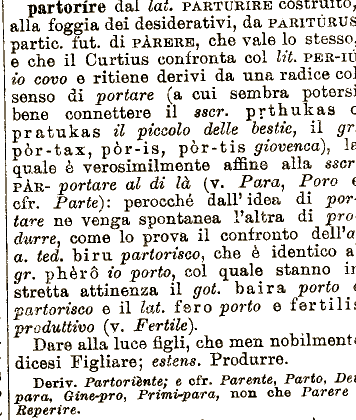 partorire dal lat. PARTURIRE costruito,
alla foggia dei desiderativi, da PARITÚRUS
partic. fut. di PÀRERE, che vale lo stesso,
e che il Curtius confronta col lit. PER-IÙ
io covo e ritiene derivi da una radice col
senso di portare (a cui sembra potersi
bene connettere il sscr. pṛthukas o
pratukas il piccolo delle bestie, il gr.
pòr-tax, pòr-is, pòr-tis giovenca), la
quale è verosimilmente affine alla sscr
PÀR- portare al di là (v. Para, Poro e
cfr. Parte): perocchè dall'idea di por-
tare ne venga spontanea l'altra di pro
durre, come lo prova il confronto dell'a
a. ted. biru partorisco, che è identico a
gr. phèrô io porto, col quale stanno in
stretta attinenza il got. baira porto e
partorisco e il lat. fero porto e fertilis
produttivo (v. Fertile).
Dare alla luce figli, che men nobilmente
dicesi Figliare; estens. Produrre.
Deriv. Partoriènte; e cfr. Parente, Parto, De
para, Gine-pro, Primi-para, non che Parere
Reperire.